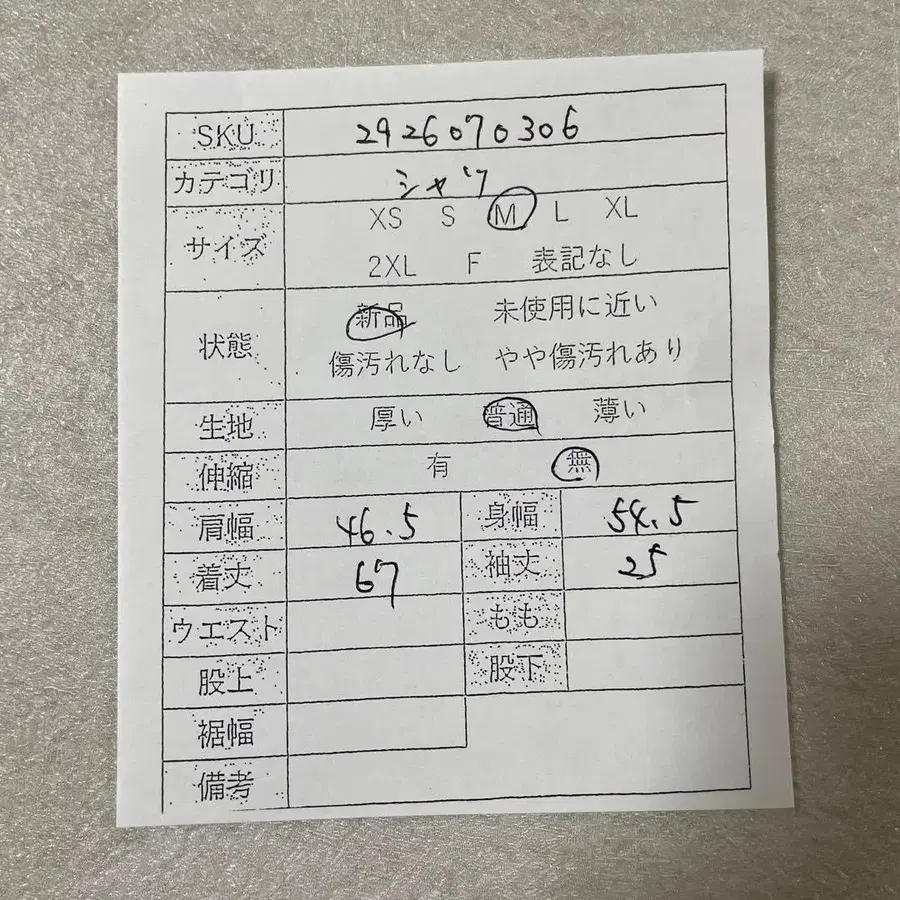 SKU 2926070306
カテゴリ シャツ
サイズ XS S M L XL
2XL F 表記なし
状態 新品 未使用に近い
傷汚れなし やや傷汚れあり
生地 厚い 普通 薄い
伸縮 有 無
肩幅 46.5 身幅 54.5
着丈 67 袖丈 25
ウエスト もも
股上 股下
裾幅
備考